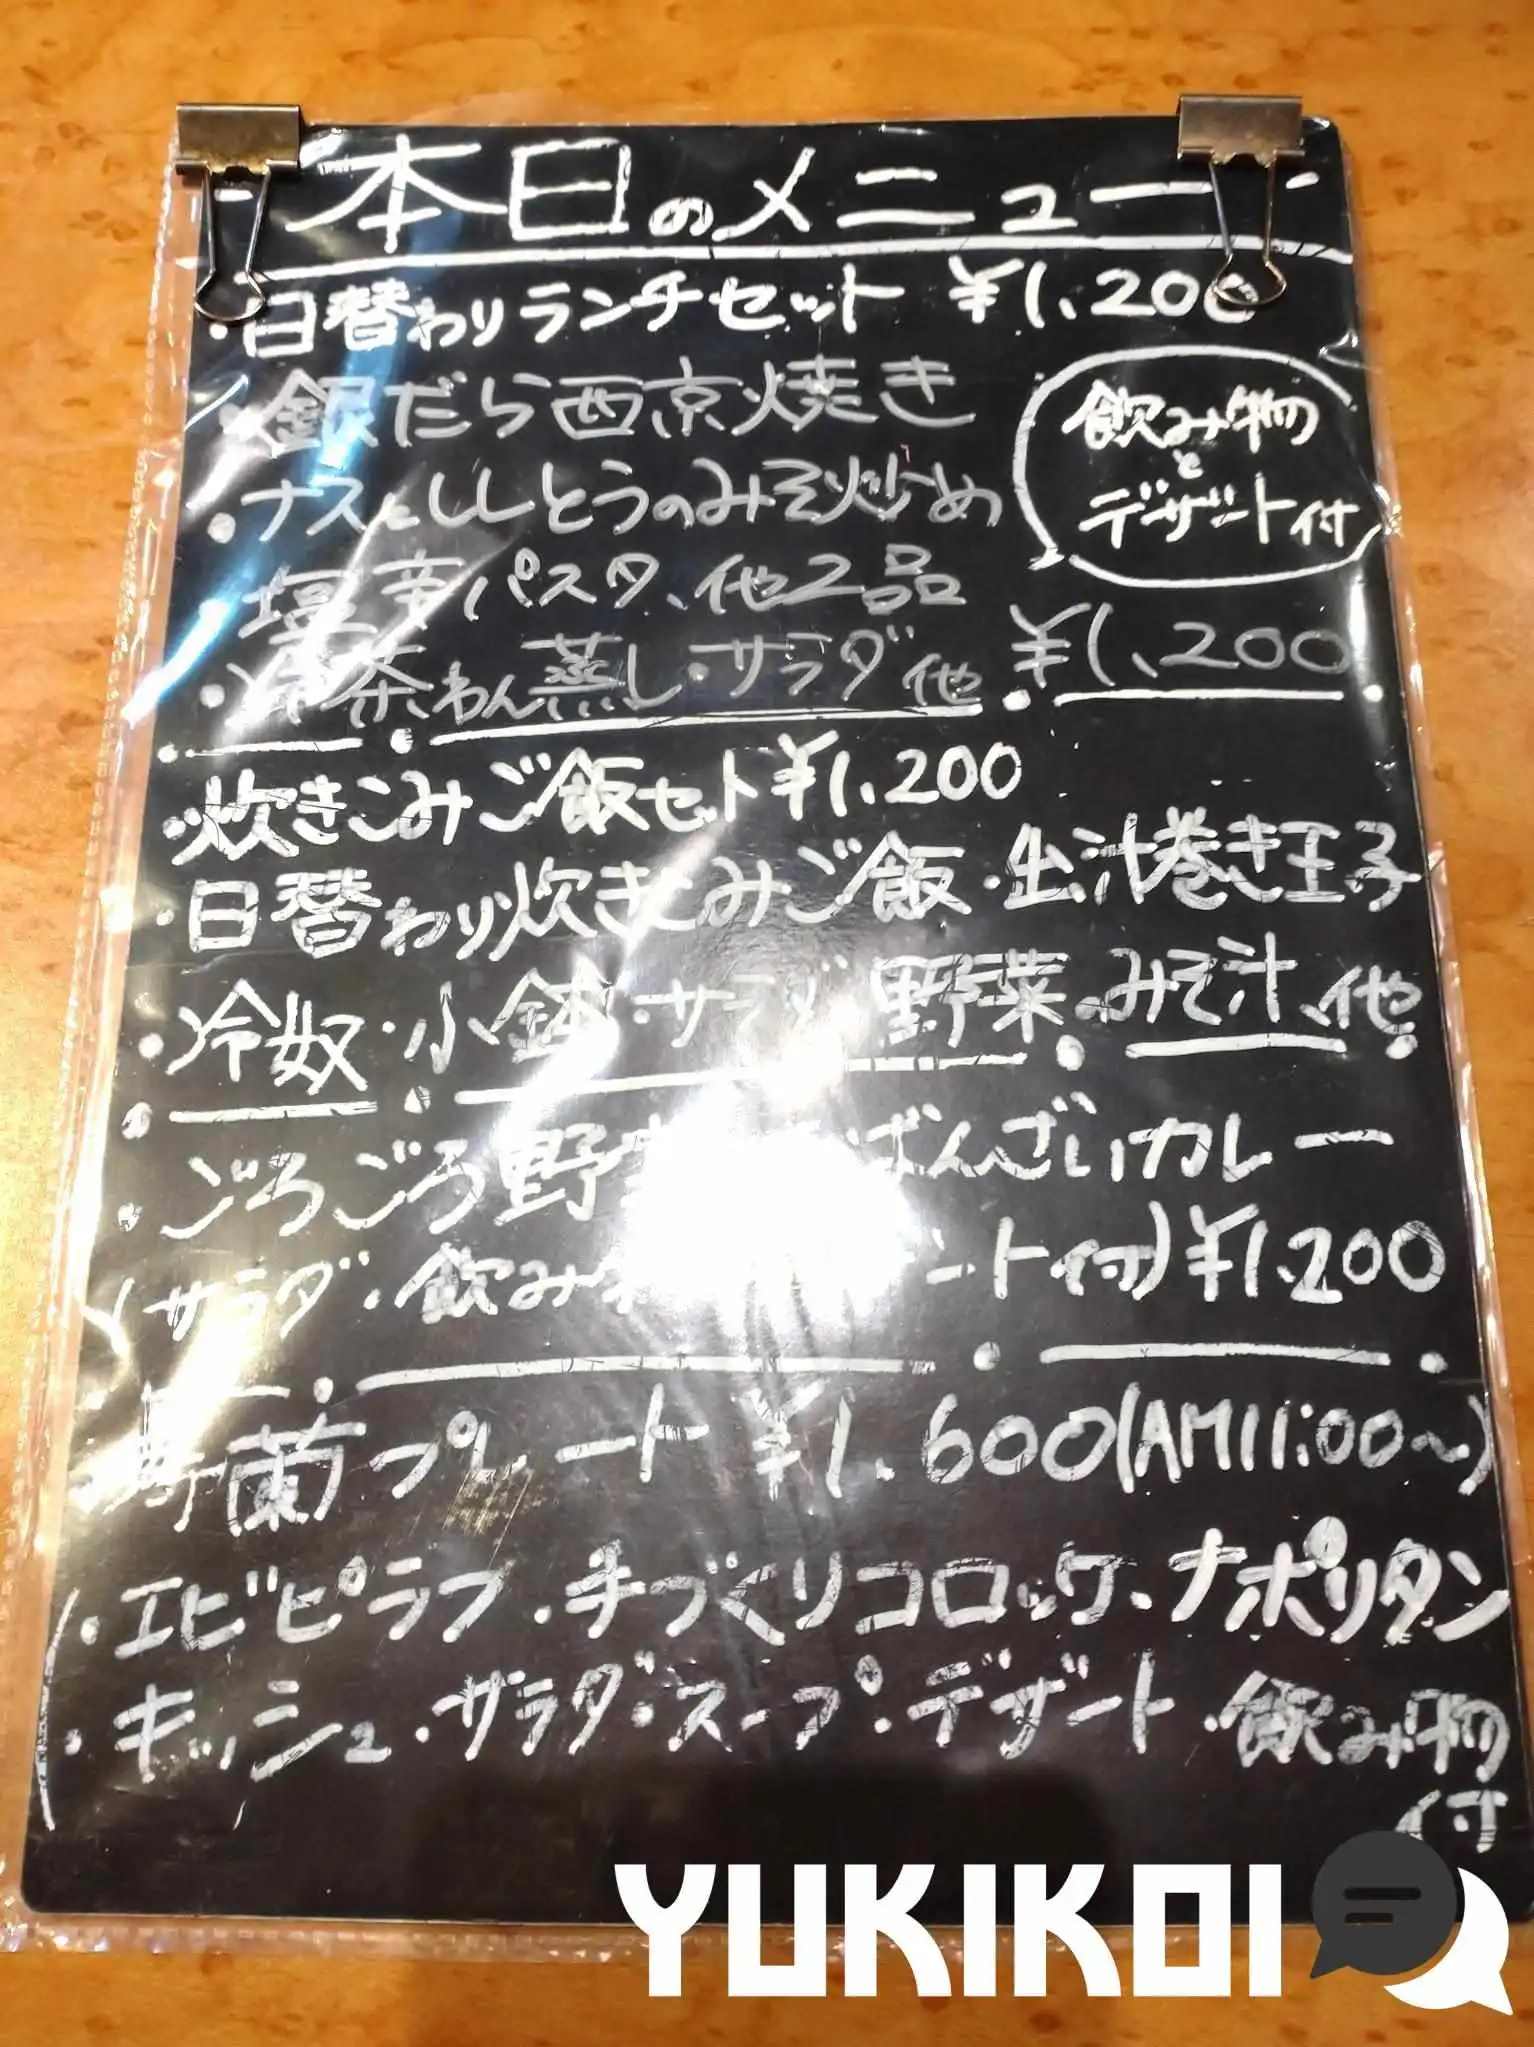 本日のメニュー
・日替わりランチセット ¥1,200
・銀だら西京焼き
・ナスとししとうのみそ炒め
・塩辛パスタ、他2品
飲み物
と
デザート付
・冷茶わん蒸し・サラダ他 ¥1,200
・炊きこみご飯セット¥1,200
・日替わり炊きこみご飯・出汁巻き玉子
・冷奴・小鉢・サラダ 野菜みそ汁、他
・ごろごろ野菜 ばんざいカレー
(サラダ・飲み物 ート付)¥1,200
蘭プレート ¥1,600(AM11:00〜)
(・エビピラフ・手づくりコロッケ・ナポリタン
・キッシュ・サラダ・スープ・デザート 飲み物
付
YUKIKOI